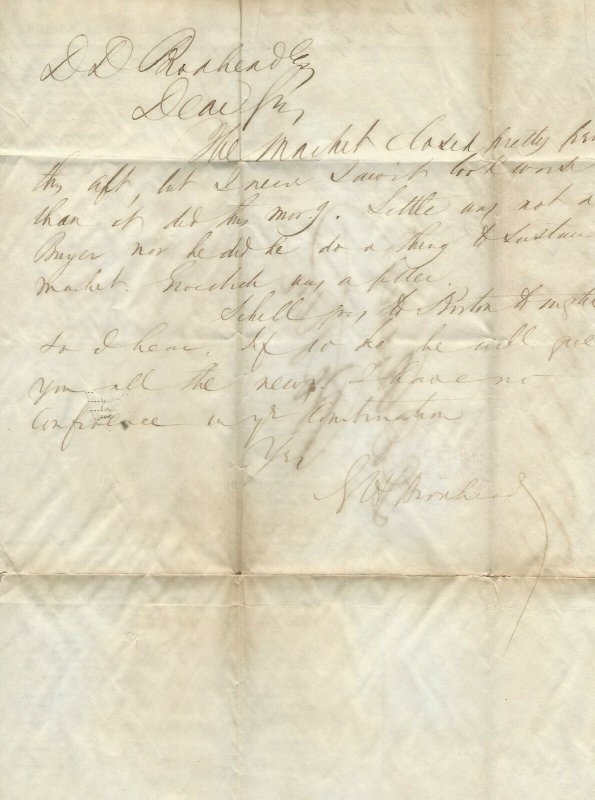 D D Broadhead Esq
Dear Sir,
The Market closed pretty
this aft, but I never saw it look worse
than it did this morg. Little was not a
Buyer nor he did he do a thing to sustain
market. was a
Schell goes to Boston to
so I hear, If so he will give
you all the news. I have no
Confidence in yr Combination
Yrs
Broadhead